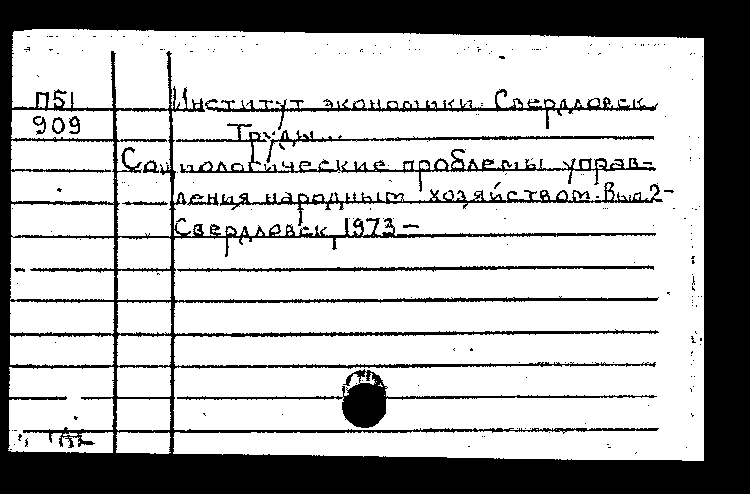 П51
909
Институт экономики. Свердловск.
Труды...
Социологические проблемы управ-
ления народным хозяйством. Вып. 2-
Свердловск, 1973 –